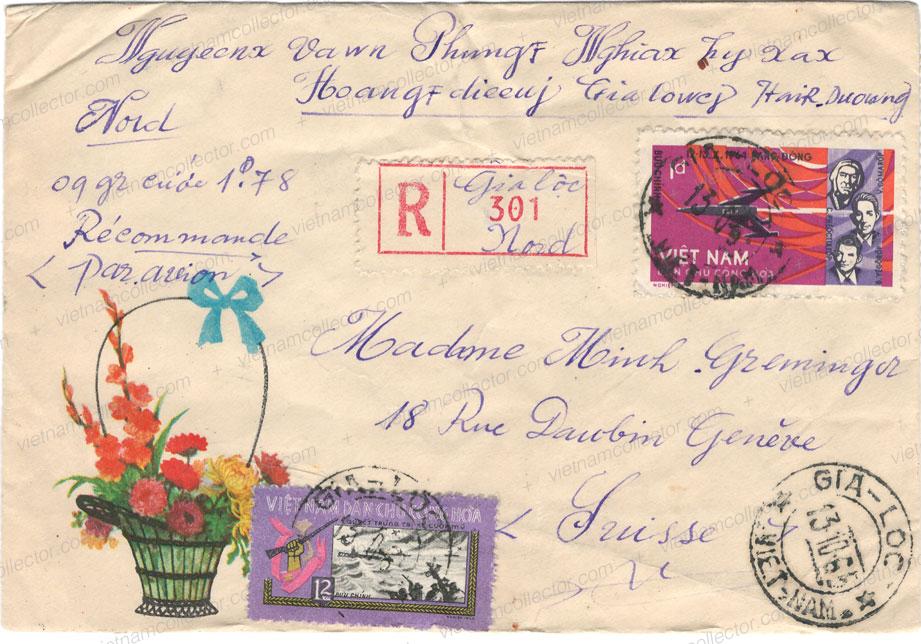 Nguyeenx Vawn Phungf Nghiax Hy xax
Hoangf dieeuj Gia lowcj Hair Duowng
Nord
09 gr cước 1đ.78
Récommande
< Par avion >
R
Gia lộc
301
Nord
12-13.X.1964
1đ
BƯU CHÍNH
VIỆT NAM
DÂN CHỦ CỘNG HÒA
Madame Minh Greminger
18 Rue Dawbin Genève
< Suisse >
VIỆT NAM DÂN CHỦ CỘNG HÒA
12
BƯU CHÍNH
GIA-LOC
GIA-LOC
VIET-NAM
vietnamcollector.com